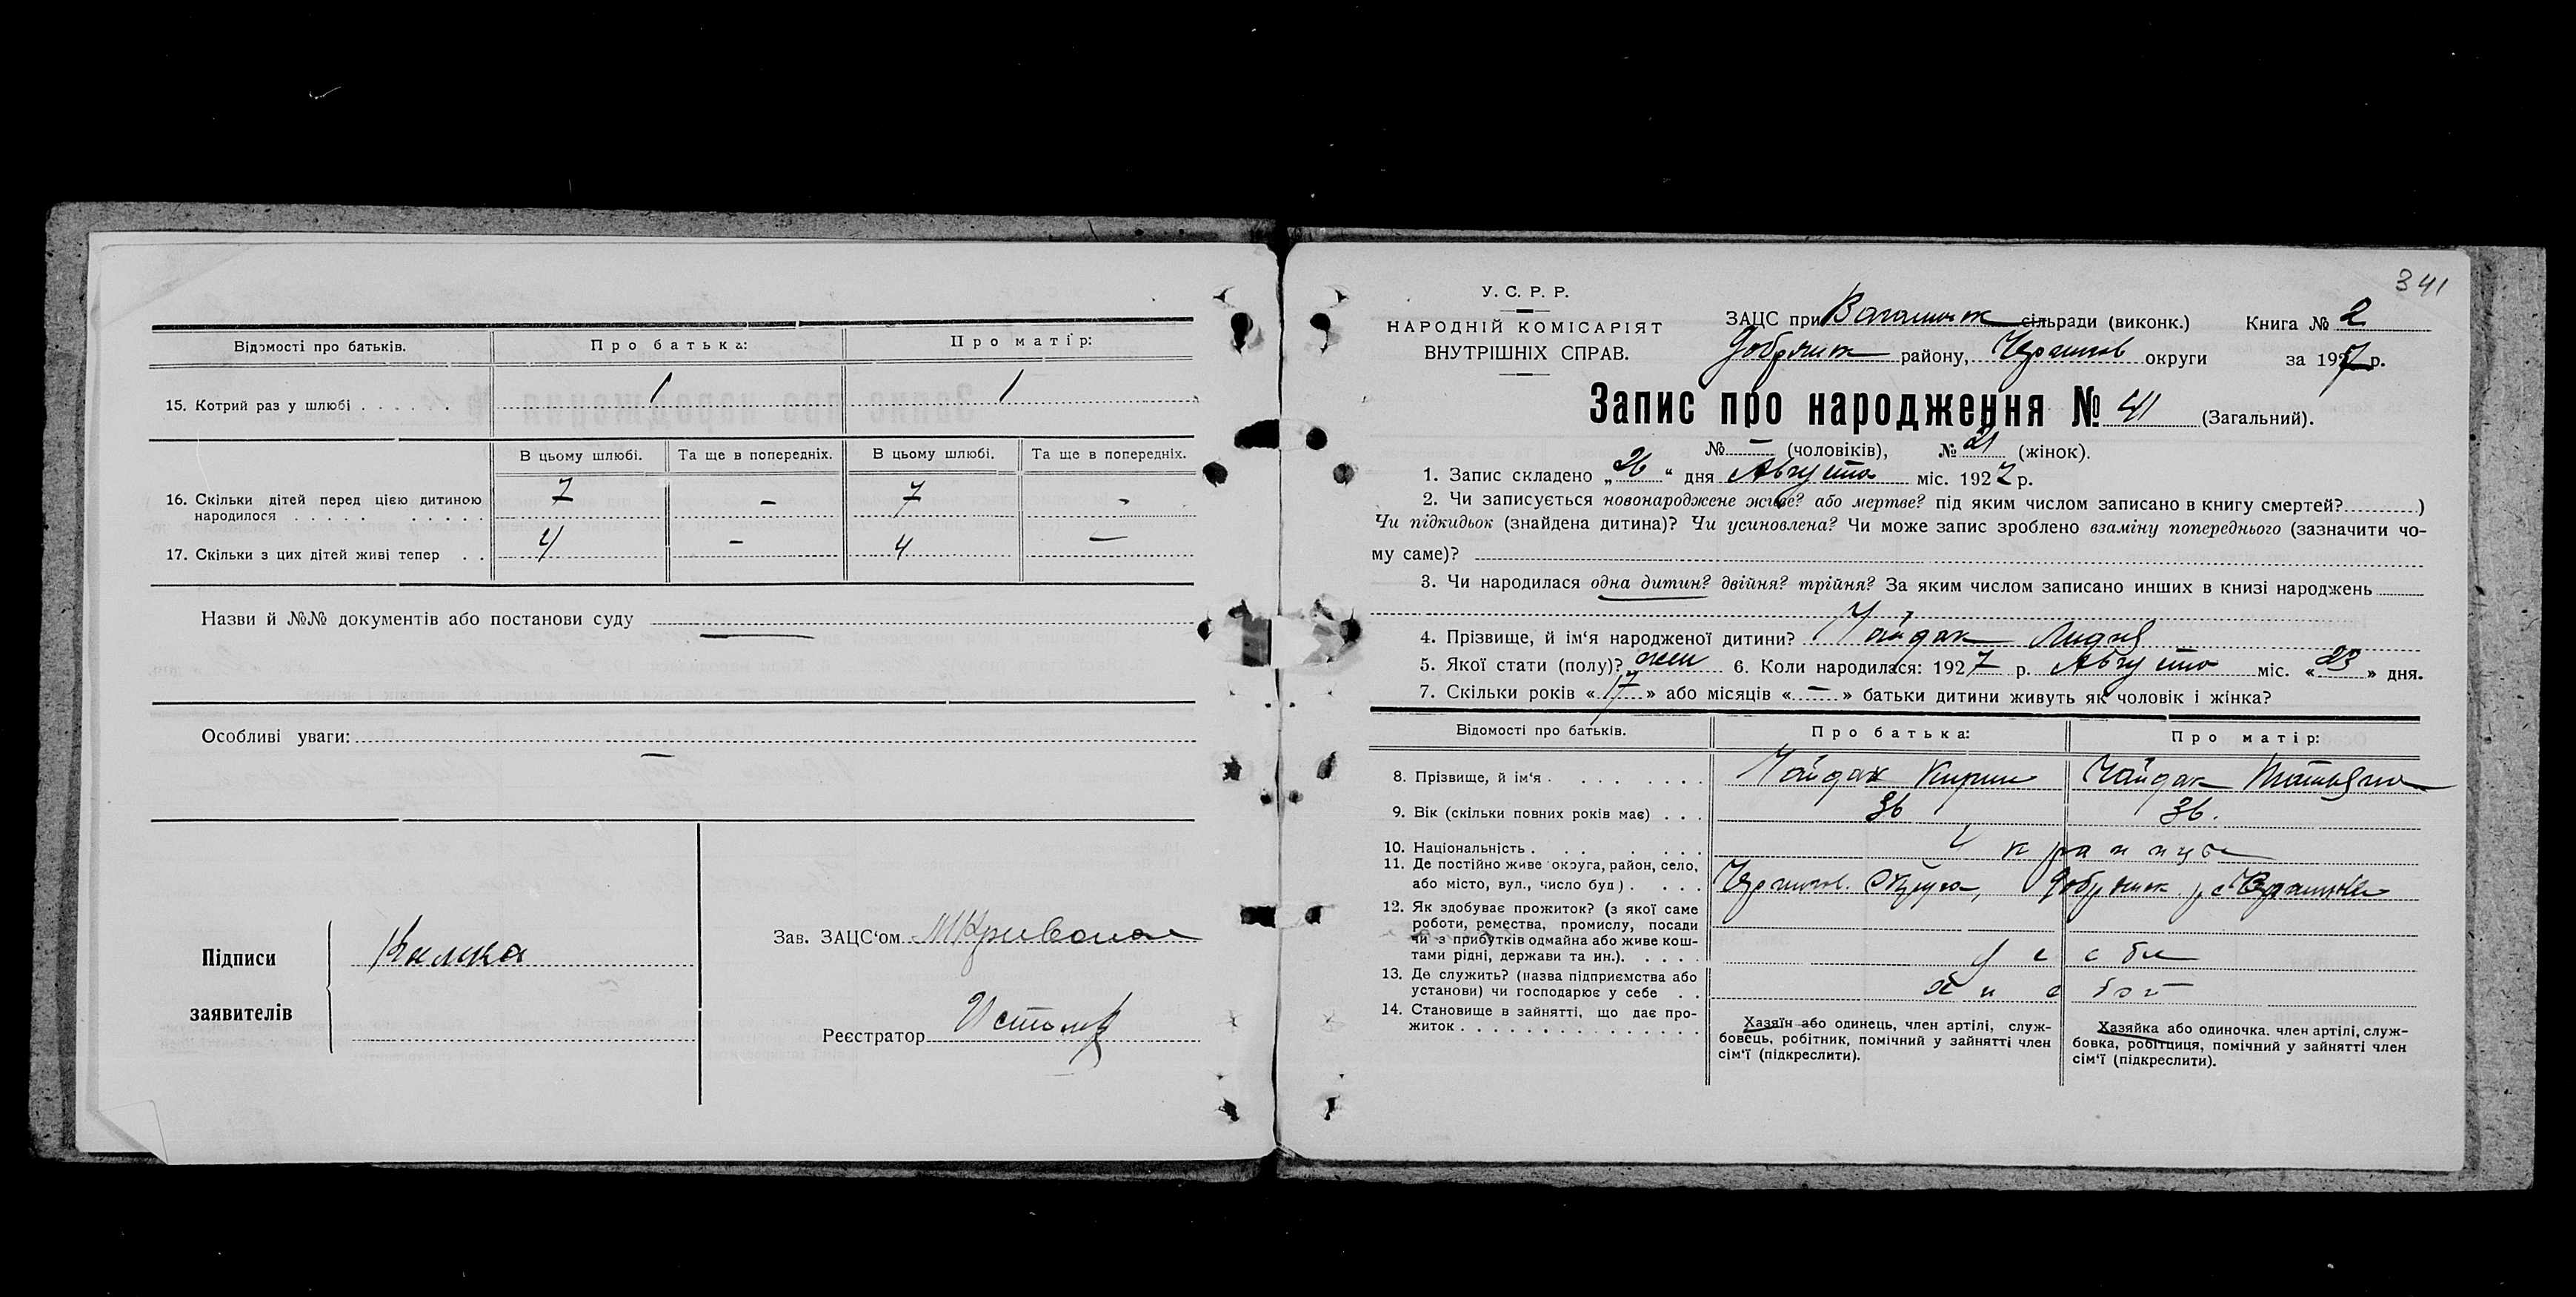 Відомості про батьків. Про батька: Про матір:
15. Котрий раз у шлюбі . . . . . . 1 1
В цьому шлюбі. Та ще в попередніх. В цьому шлюбі. Та ще в попередніх.
16. Скільки дітей перед цією дитиною 7 – 7 –
народилося . . . . . . . . . .
17. Скільки з цих дітей живі тепер . . 4 – 4 –
Назви й №№ документів або постанови суду —
Особливі уваги: —
Підписи
заявителів
Зав. ЗАЦС‘ом
Реєстратор
341
У. С. Р. Р.
НАРОДНІЙ КОМІСАРІЯТ
ВНУТРІШНІХ СПРАВ.
ЗАЦС при сільради (виконк.) Книга № 2
Добрянск району, Чернигов округи за 1927 р.
Запис про народження № 41 (Загальний).
№ – (чоловіків), № 21 (жінок).
1. Запис складено „26“ дня Августа міс. 1927 р.
2. Чи записується новонароджене живе? або мертве? під яким числом записано в книгу смертей?..........)
Чи підкидьок (знайдена дитина)? Чи усиновлена? Чи може запис зроблено взаміну попереднього (зазначити чо-
му саме)?
3. Чи народилася одна дитин? двійня? трійня? За яким числом записано инших в книзі народжень
4. Прізвище, й ім‘я народженої дитини? Чайдак Лидия
5. Якої стати (полу)? жен 6. Коли народилася: 1927 р. Августа міс. «23» дня.
7. Скільки років «17» або місяців «–» батьки дитини живуть як чоловік і жінка?
Відомості про батьків. Про батька: Про матір:
8. Прізвище, й ім‘я . . . . . . . . Чайдак Кирил Чайдак Татьяна
9. Вік (скільки повних років має) . . . 36 36.
10. Національність . . . . . . . Украинцы
11. Де постійно живе округа, район, село,
або місто, вул., число буд) . . . . Чернигов. Округа, Добрянск р,
12. Як здобуває прожиток? (з якої саме
роботи, ремества, промислу, посади
чи з прибутків одмайна або живе кош-
тами рідні, держави та ин.). . . . .
13. Де служить? (назва підприємства або
установи) чи господарює у себе . .
14. Становище в зайнятті, що дає про-
житок . . . . . . . . . . . . . . .
Хазяїн або одинець, член артілі, служ-
бовець, робітник, помічний у зайнятті член
сім‘ї (підкреслити).
Хазяйка або одиночка. член артілі, служ-
бовка, робітниця, помічний у зайнятті член
сім‘ї (підкреслити).